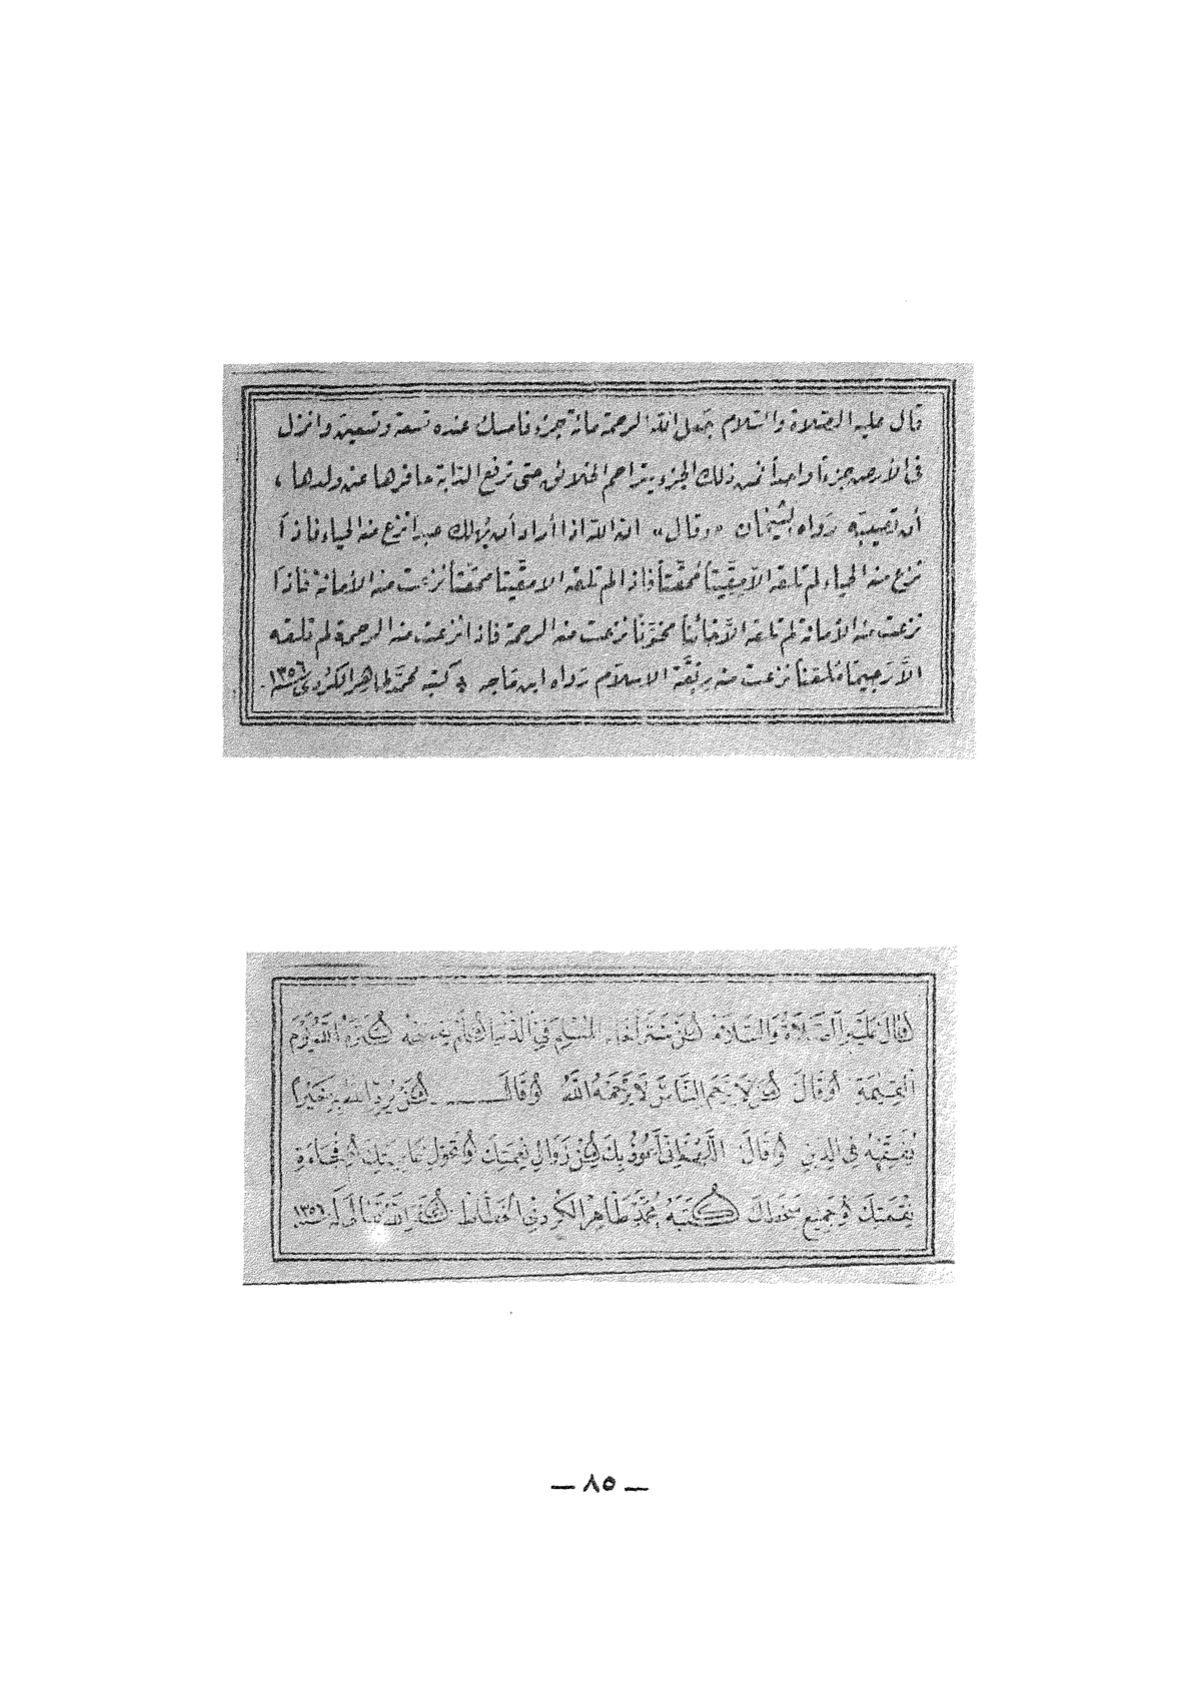 قال عليه الصلاة والسلام جعل الله الرحمة مائة جزء فامسك عنده تسعة وتسعين وانزل
فى الأرض جزءاً واحداً فمن ذلك الجزء يتراحم الخلائق حتى ترفع الدابة حافرها عن ولدها ،
أن تصيبه رواه الشيخان «وقال» ان الله اذا أراد أن يهلك عبدا نزع منه الحياء فاذآ
نزع منه الحياء لم تلقه الا مقيتاً ممقتاً فاذا لم تلقه الا مقيتا ممقتا نزعت منه الأمانة فاذا
نزعت منه الأمانة لم تلقه الا خائنا مخونا نزعت منه الرحمة فاذا نزعت منه الرحمة لم تلقه
الا رجيما ملعنا نزعت منه ربقة الاسلام رواه ابن ماجه كتبه محمد طاهر الكردى سنة ١٣٥٦
قال عليه الصلاة والسلام من ستر أخاه المسلم في الدنيا فلم يفضحه ستره الله يوم
القيمة وقال من لا يرحم الناس لا يرحمه الله وقال من يرد الله به خيرا
يفقهه في الدين وقال اللهم إني أعوذ بك من زوال نعمتك وتحول عافيتك وفجاءة
نقمتك وجميع سخطك كتبه محمد طاهر الكردي الخطاط غفر الله تعالى له سنة ١٣٥٦
— ٨٥ —